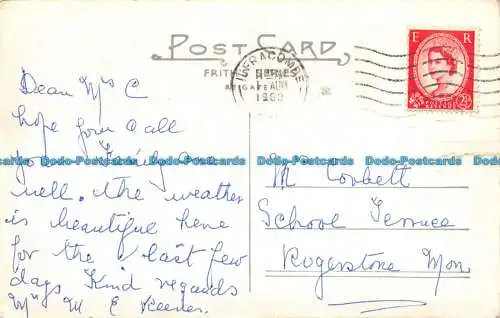 POST CARD
FRITH SERIES
REIGATE
ILFRACOMBE
E R
2½
Dear Mrs C
hope you & all
your family are
well. The weather
is beautiful here
for the last few
days Kind regards
Mrs M E
Mr Corbett
School Terrace
Rogerstone Mon
Dodo-Postcards Dodo-Postcards Dodo-Postcards Dodo-Postcards Dodo-Postcards